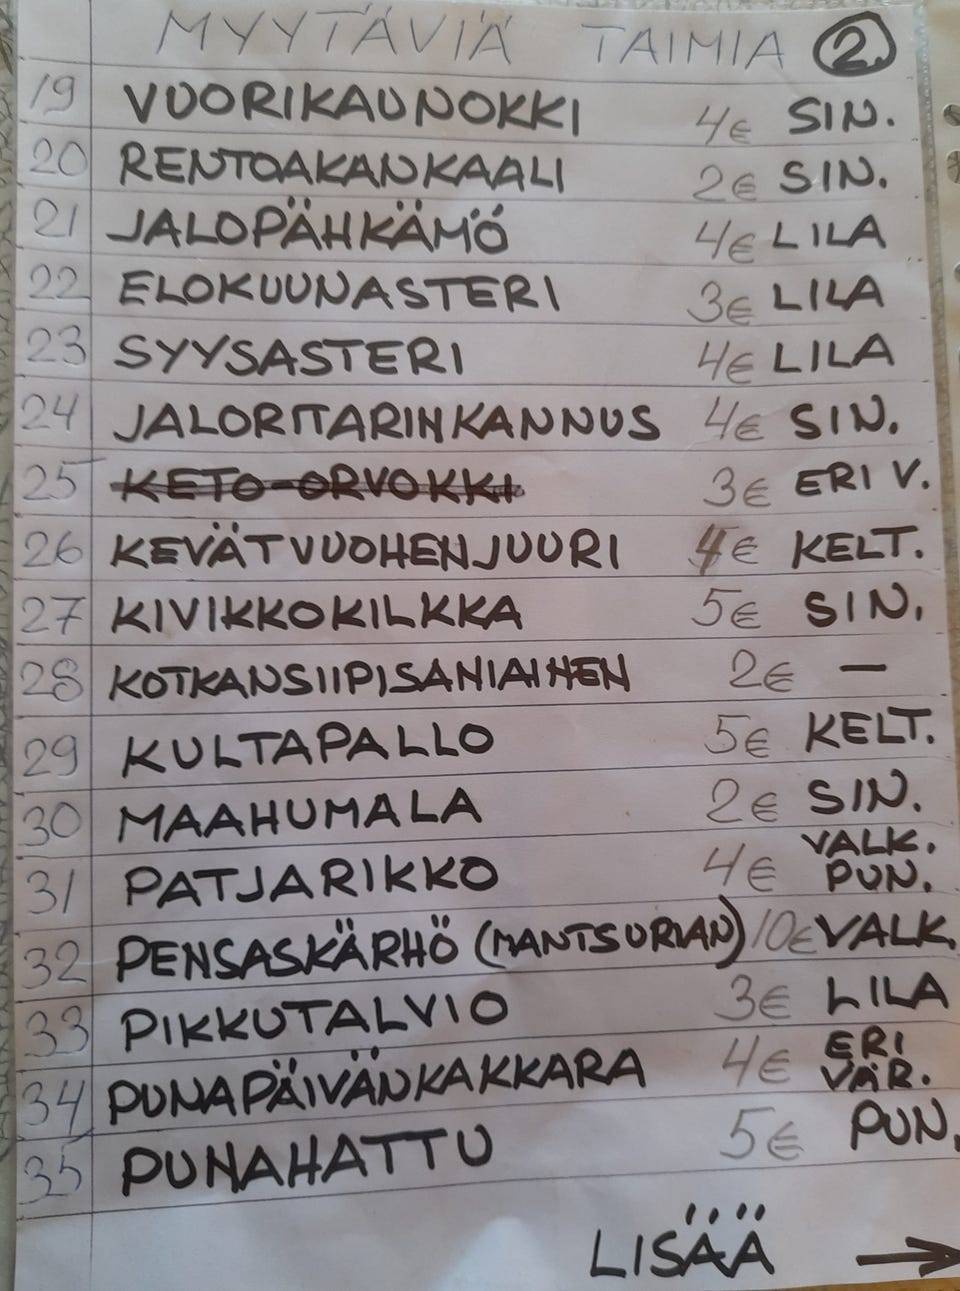 MYYTÄVIÄ TAIMIA 2.
19 VUORIKAUNOKKI 4€ SIN.
20 RENTOAKANKAALI 2€ SIN.
21 JALOPÄHKÄMÖ 4€ LILA
22 ELOKUUNASTERI 3€ LILA
23 SYYSASTERI 4€ LILA
24 JALORITARINKANNUS 4€ SIN.
25 KETO-ORVOKKI 3€ ERI V.
26 KEVÄTVUOHENJUURI 4€ KELT.
27 KIVIKKOKILKKA 5€ SIN.
28 KOTKANSIIPISANIAINEN 2€ —
29 KULTAPALLO 5€ KELT.
30 MAAHUMALA 2€ SIN.
31 PATJARIKKO 4€ VALK. PUN.
32 PENSASKÄRHÖ (MANTSURIAN) 10€ VALK.
33 PIKKUTALVIO 3€ LILA
34 PUNAPÄIVÄNKAKKARA 4€ ERI VÄR.
35 PUNAHATTU 5€ PUN.
LISÄÄ →